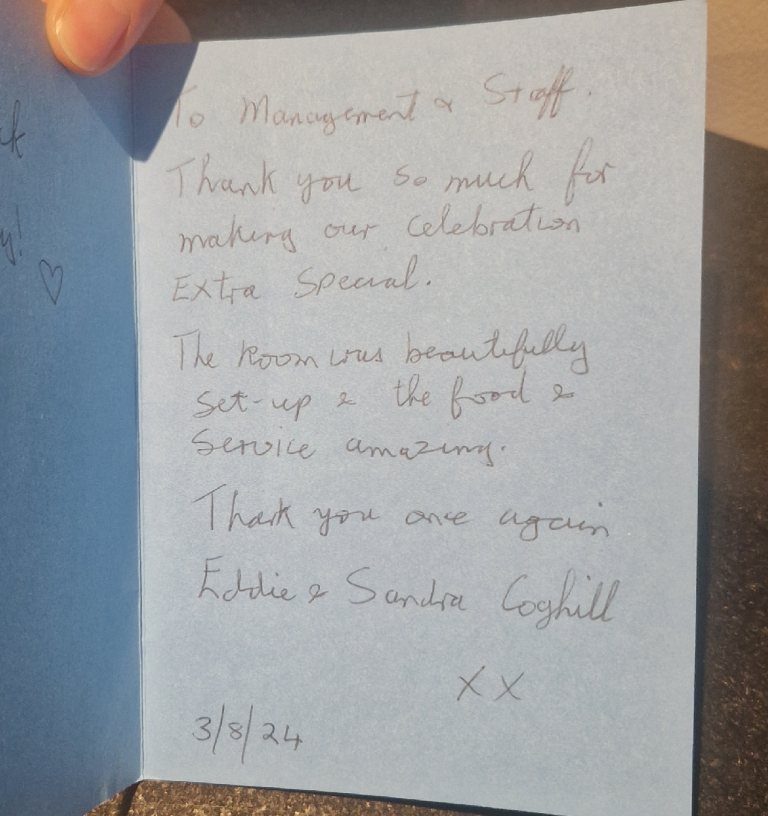 y!
♡
To Management & Staff.
Thank you so much for
making our celebration
Extra Special.
The Room was beautifully
Set-up & the food &
Service amazing.
Thank you once again
Eddie & Sandra Coghill
X X
3/8/24